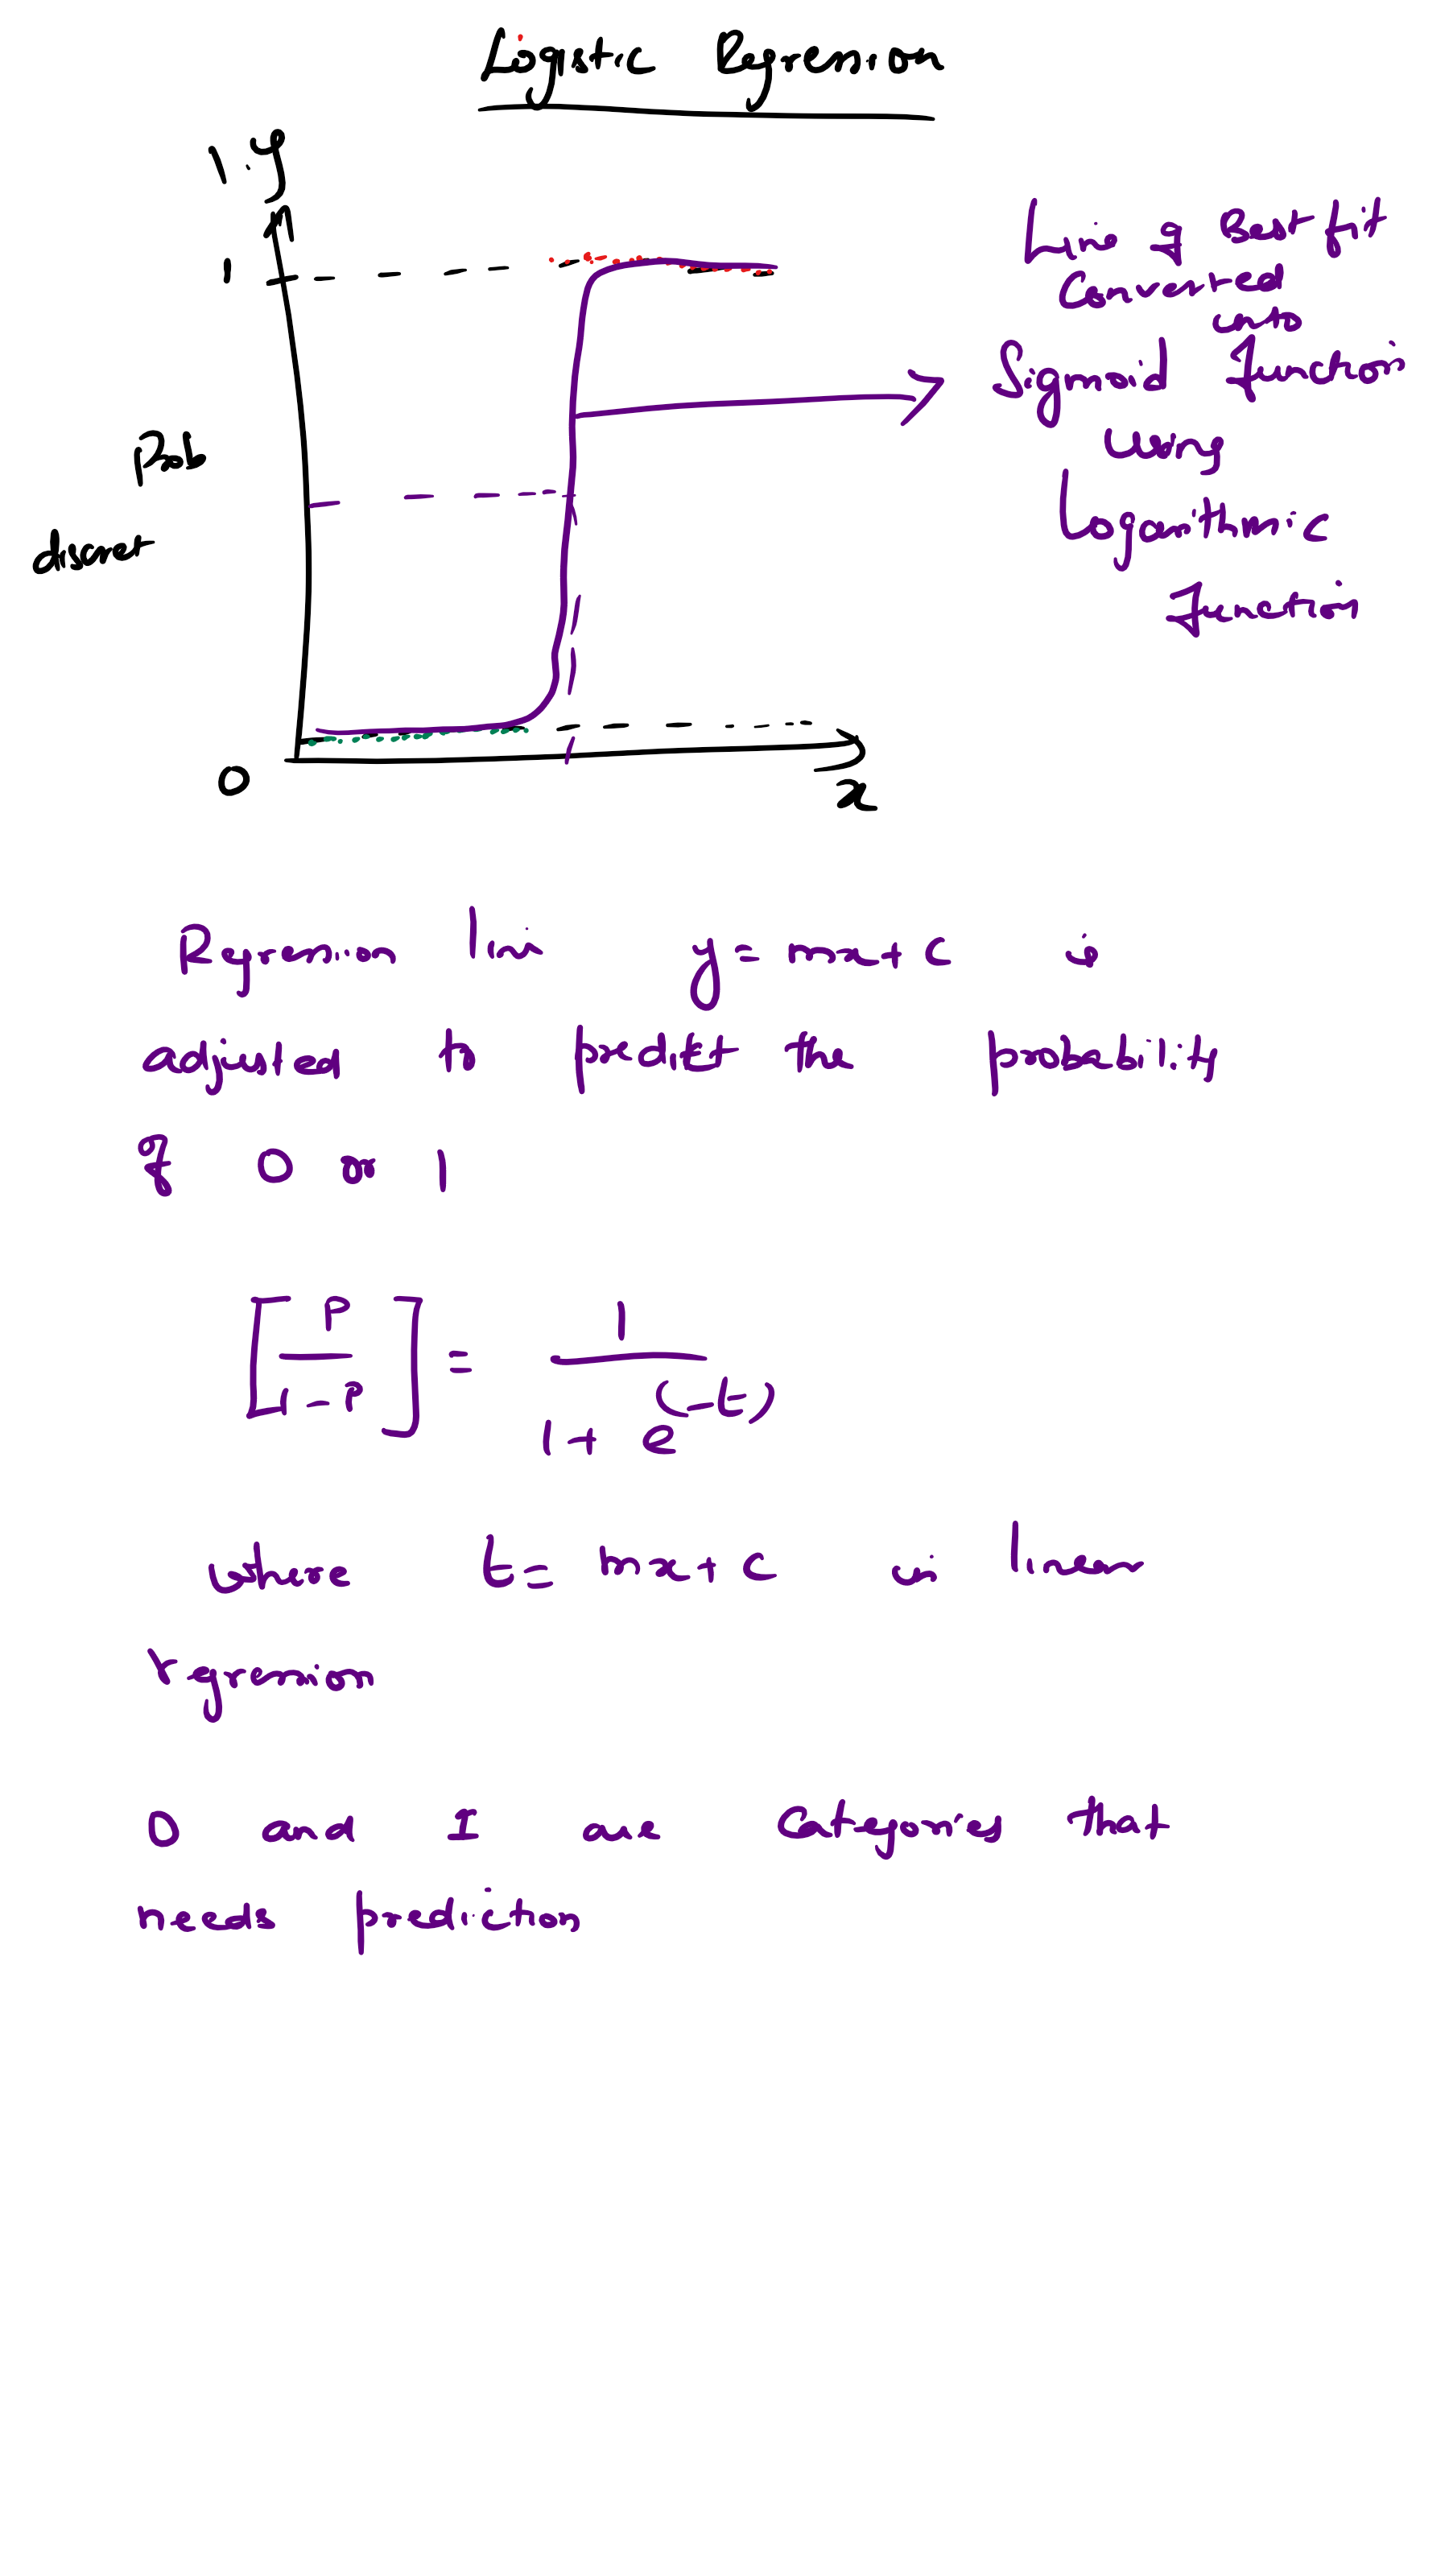 Logistic Regression
1.y
1
Prob
discret
0
x
Line of Best fit
Converted
into
Sigmoid function
using
Logarithmic
function
Regression line y = mx + c is
adjusted to predict the probability
of 0 or 1
[P / 1 - P] = 1 / 1 + e^(-t)
where t = mx + c is linear
regression
0 and 1 are categories that
needs prediction